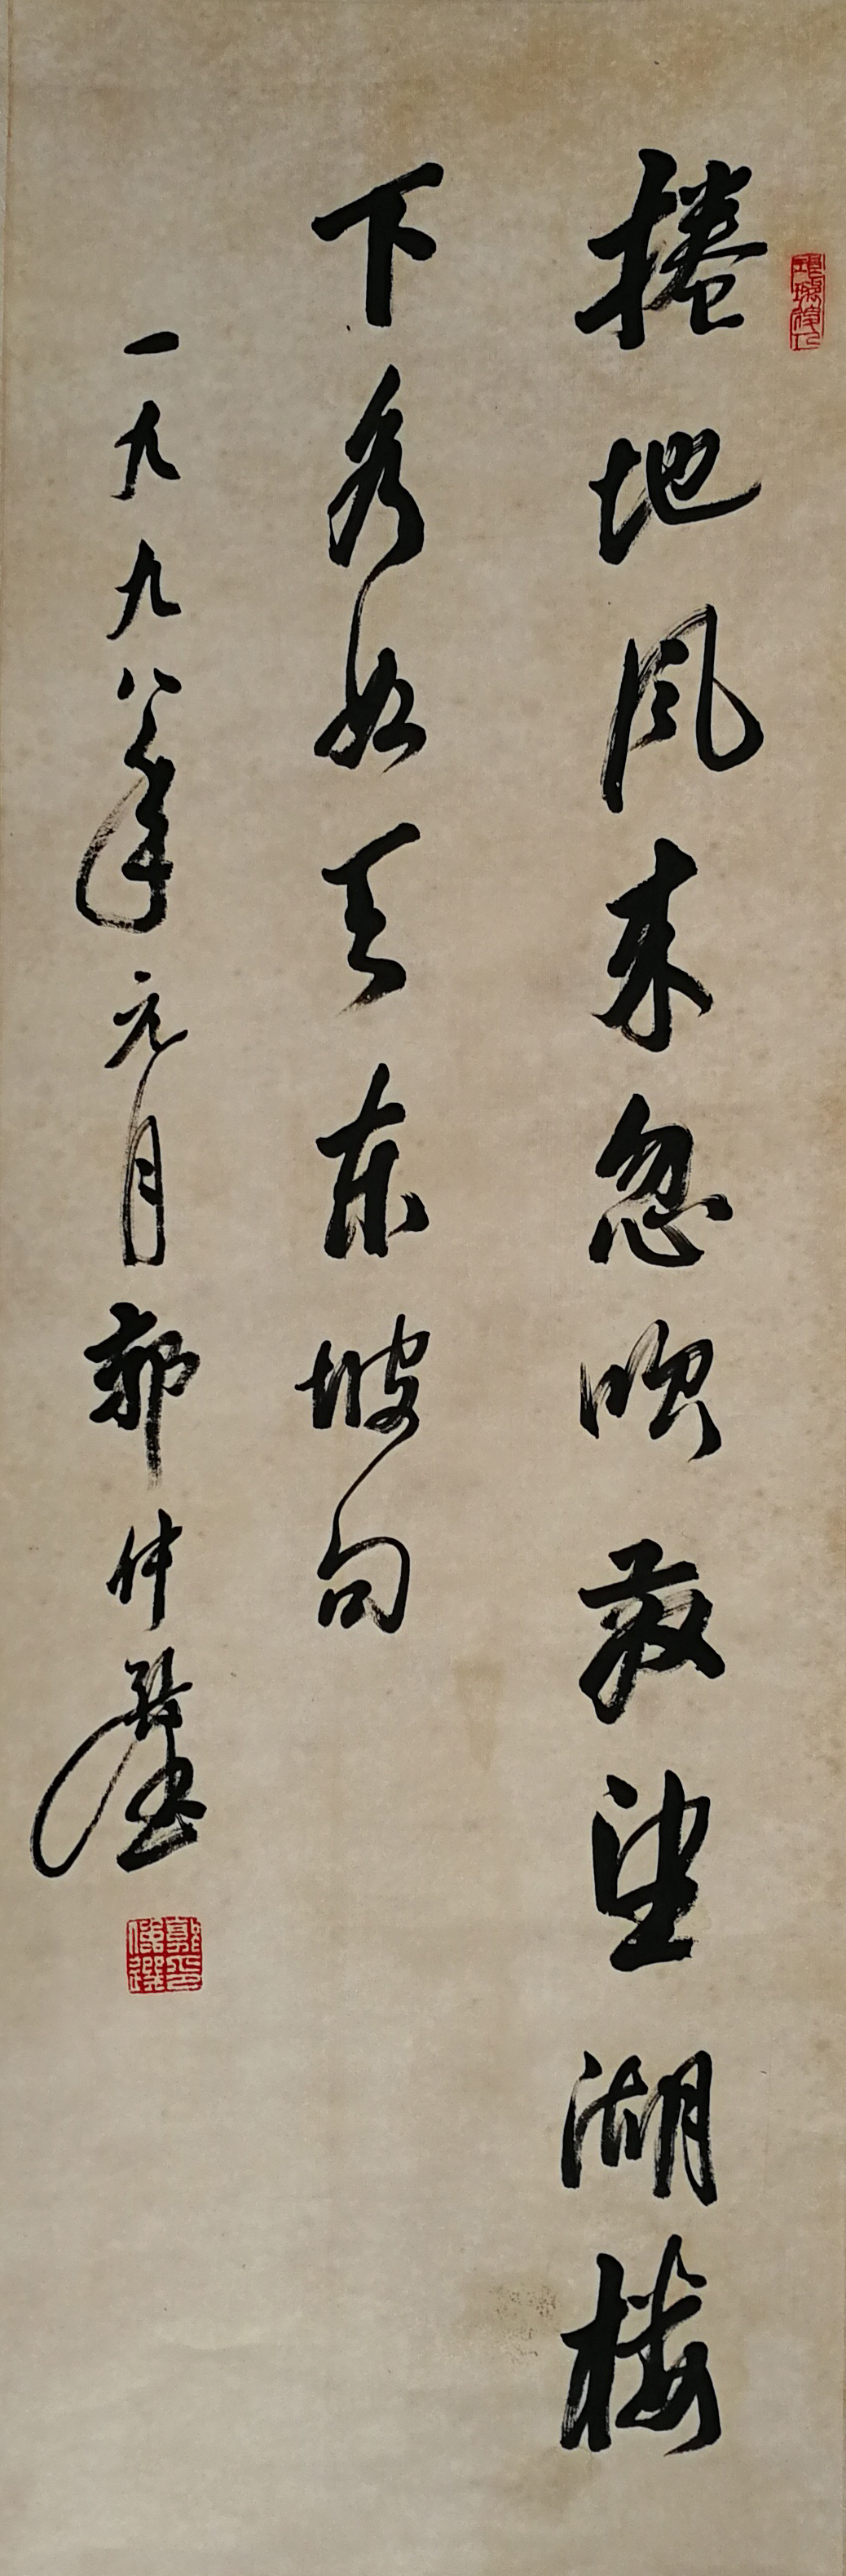 捲地风来忽吹散望湖楼
下水如天东坡句
一九九八年元月郭仲選
郭印仲選